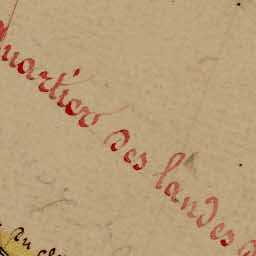 quartier des landes
du